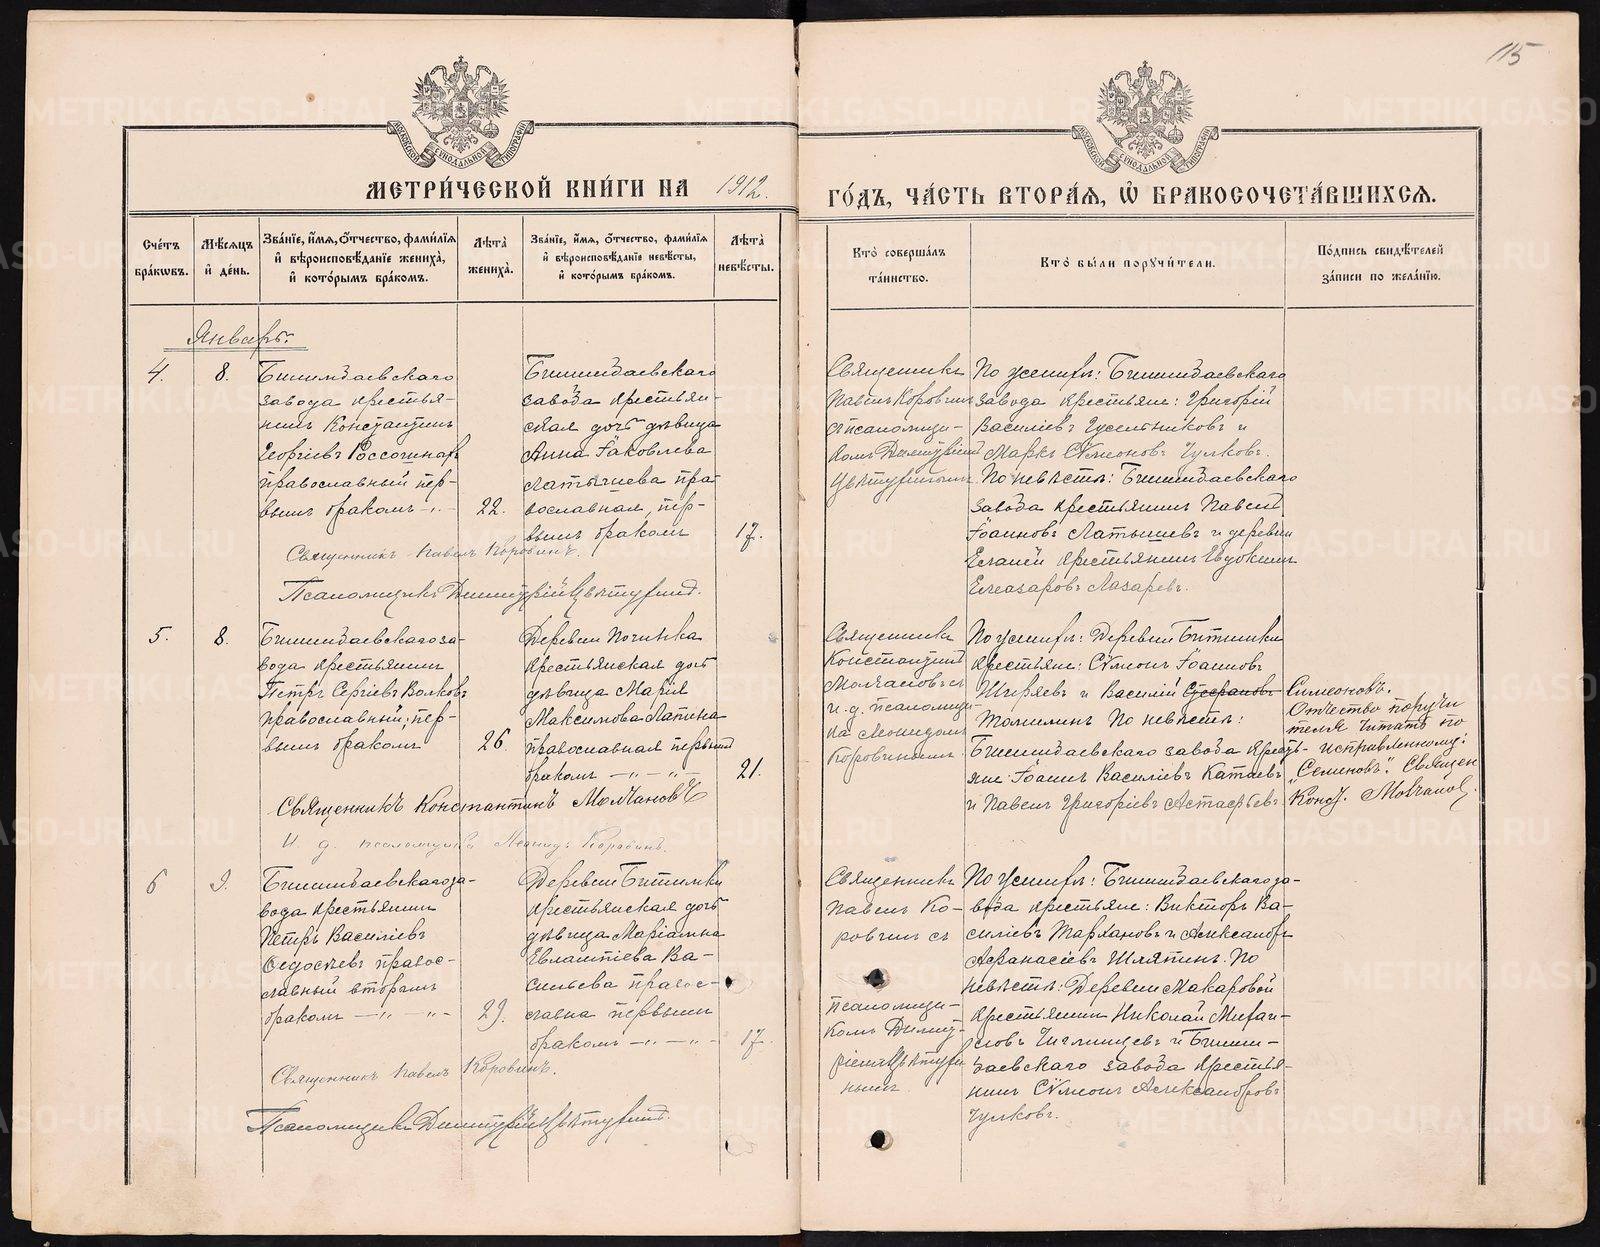 115
МОСКОВСКОЙ СѴНОДАЛЬНОЙ ТИПОГРАФІИ
МОСКОВСКОЙ СѴНОДАЛЬНОЙ ТИПОГРАФІИ
МЕТРИ́ЧЕСКОЙ КНИ́ГИ НА 1912.
ГО́ДЪ, ЧА́СТЬ ВТОРА́Я, Ѡ҆ БРАКОСОЧЕТА́ВШИХСЯ.
Сче́тъ бра́кѡвъ.
Мѣ́сяцъ и҆ де́нь.
Зва́нїе, и҆́мя, ѻ҆́тчество, фами́лїя и҆ вѣроисповѣ́данїе жениха̀, и҆ кото́рымъ бра́комъ.
Лѣ́та̀ жениха̀.
Зва́нїе, и҆́мя, ѻ҆́тчество, фами́лїя и҆ вѣроисповѣ́данїе невѣ́сты, и҆ кото́рымъ бра́комъ.
Лѣ́та̀ невѣ́сты.
Кто̀ соверша́лъ та́инство.
Кто̀ бы́ли порꙋчи́тели.
По́дпись свидѣ́телей за́писи по жела́нїю.
Январь.
4.
8.
Билимбаевскаго
завода крестья-
нинъ Константинъ
Георгіевъ Россошныхъ
православный пер-
вымъ бракомъ -"-
22.
Билимбаевскаго
завода крестьян-
ская дочь девица
Анна Іаковлева
Латышева пра-
вославная, пер-
вымъ бракомъ
17.
Священникъ
Павелъ Коровинъ
съ псаломщи-
комъ Димитріемъ
По женихѣ: Билимбаевскаго
завода крестьяне: Григорій
Василіевъ Гусельниковъ и
Маркъ Сѵмеоновъ Чулковъ.
По невѣстѣ: Билимбаевскаго
завода крестьянинъ Павелъ
Іоанновъ Латышевъ и деревни
крестьянинъ Евдокимъ
Елеазаровъ Лазаревъ.
Священникъ Павелъ Коровинъ.
Псаломщикъ Димитрій
5.
8.
Билимбаевскаго за-
вода крестьянинъ
Петръ Сергіевъ Волковъ
православный, пер-
вымъ бракомъ
26.
Деревни Починка
крестьянская дочь
дѣвица Марія
Максимова Лапина
православная первымъ
бракомъ -"-"-
21.
Священникъ
Константинъ
Молчановъ съ
и. д. псаломщи-
ка Леонидомъ
Коровинымъ
По женихѣ: Деревни Битимки
крестьяне: Сѵмеонъ Іоанновъ
Ширяевъ и Василій Стефановъ
Томилинъ По невѣстѣ:
Билимбаевскаго завода кресть-
яне: Іоаннъ Василіевъ Катаевъ
и Павелъ Григоріевъ Астафьевъ
Симеоновъ.
Отчество поручи
теля читать по
исправленному:
"Семеновъ". Священ
Конст. Молчановъ.
Священникъ Константинъ Молчановъ
И. д. псаломщика Леонидъ Коровинъ.
6
9.
Билимбаевскаго за-
вода крестьянинъ
Петръ Василіевъ
Ѳедосѣевъ правос-
лавный вторымъ
бракомъ -"-"-
29.
Деревни Битимки
крестьянская дочь
дѣвица Маріамна
Евлампіева Ва-
сильева правос-
лавна первымъ
бракомъ -"-"-
17.
Священникъ
Павелъ Ко-
ровинъ съ
псаломщи-
комъ Димит-
По женихѣ: Билимбаевскаго за-
вода крестьяне: Викторъ Ва-
силіевъ Тархановъ и Александръ
Афанасіевъ Шляпинъ. По
невѣстѣ: Деревни Макаровой
крестьянинъ Николай Михаи-
ловъ и Билим-
баевскаго завода крестья-
нинъ Сѵмеонъ Александровъ
Чулковъ.
Священникъ Павелъ Коровинъ.
Псаломщикъ Димитрій
METRIKI.GASO-URAL.RU